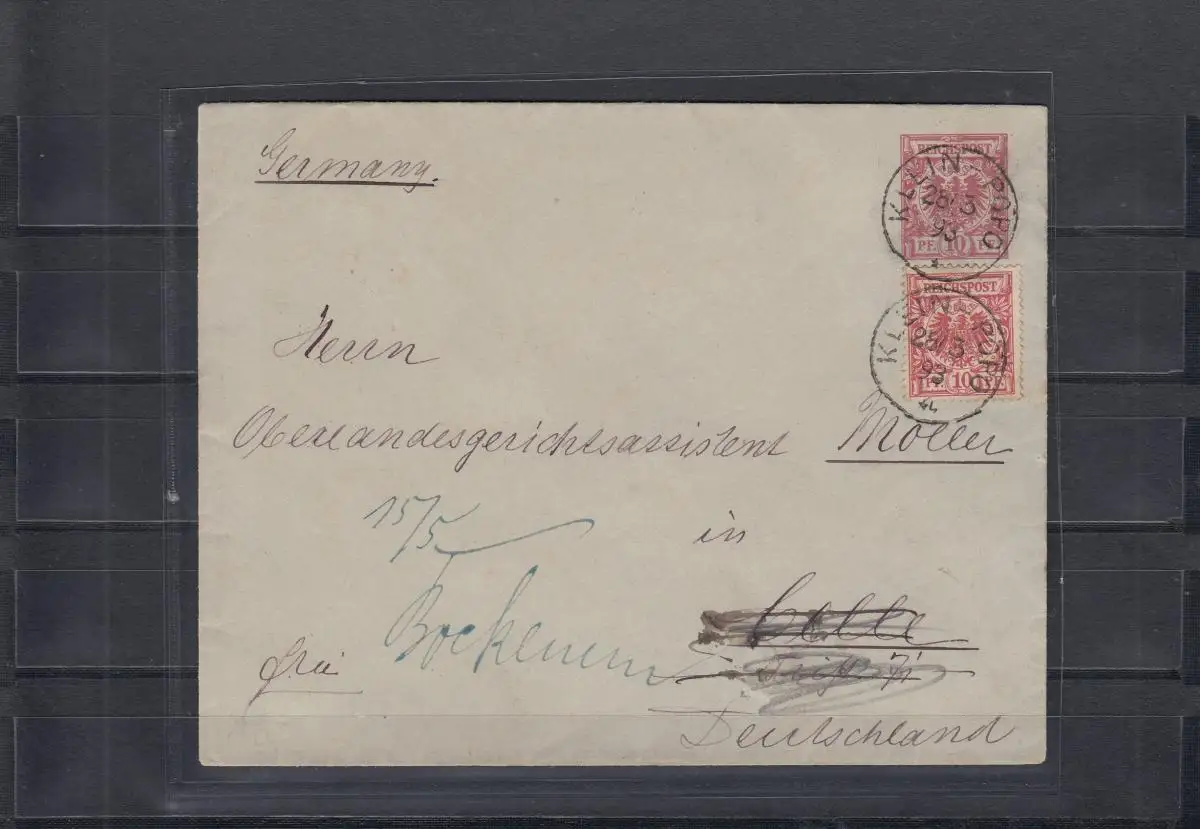 Germany.
REICHSPOST
KLEIN-POPO
28/3
93
PF. 10 PF.
REICHSPOST
KLEIN-POPO
28/3
93
PF. 10 PF.
Herrn
Oberlandesgerichtsassistent Möller
15/5
in
Bockenem
Celle
frei
Deutschland